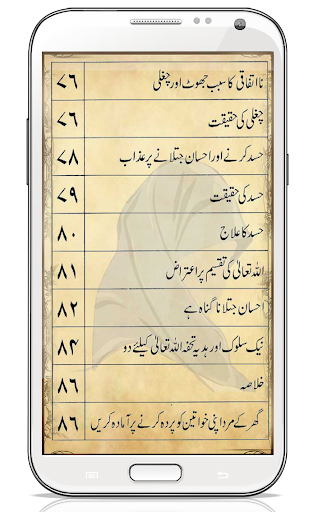 نا اتفاقی کا سبب جھوٹ اور چغلی ۷۶
چغلی کی حقیقت ۷۶
حسد کرنے اور احسان جتلانے پر عذاب ۷۸
حسد کی حقیقت ۷۹
حسد کا علاج ۸۰
اللہ تعالیٰ کی تقسیم پر اعتراض ۸۱
احسان جتلانا گناہ ہے ۸۲
نیک سلوک اور ہدیہ تحفہ اللہ تعالیٰ کیلئے دو ۸۴
خلاصہ ۸۶
گھر کے مرد اپنی خواتین کو پردہ کرنے پر آمادہ کریں ۸۶